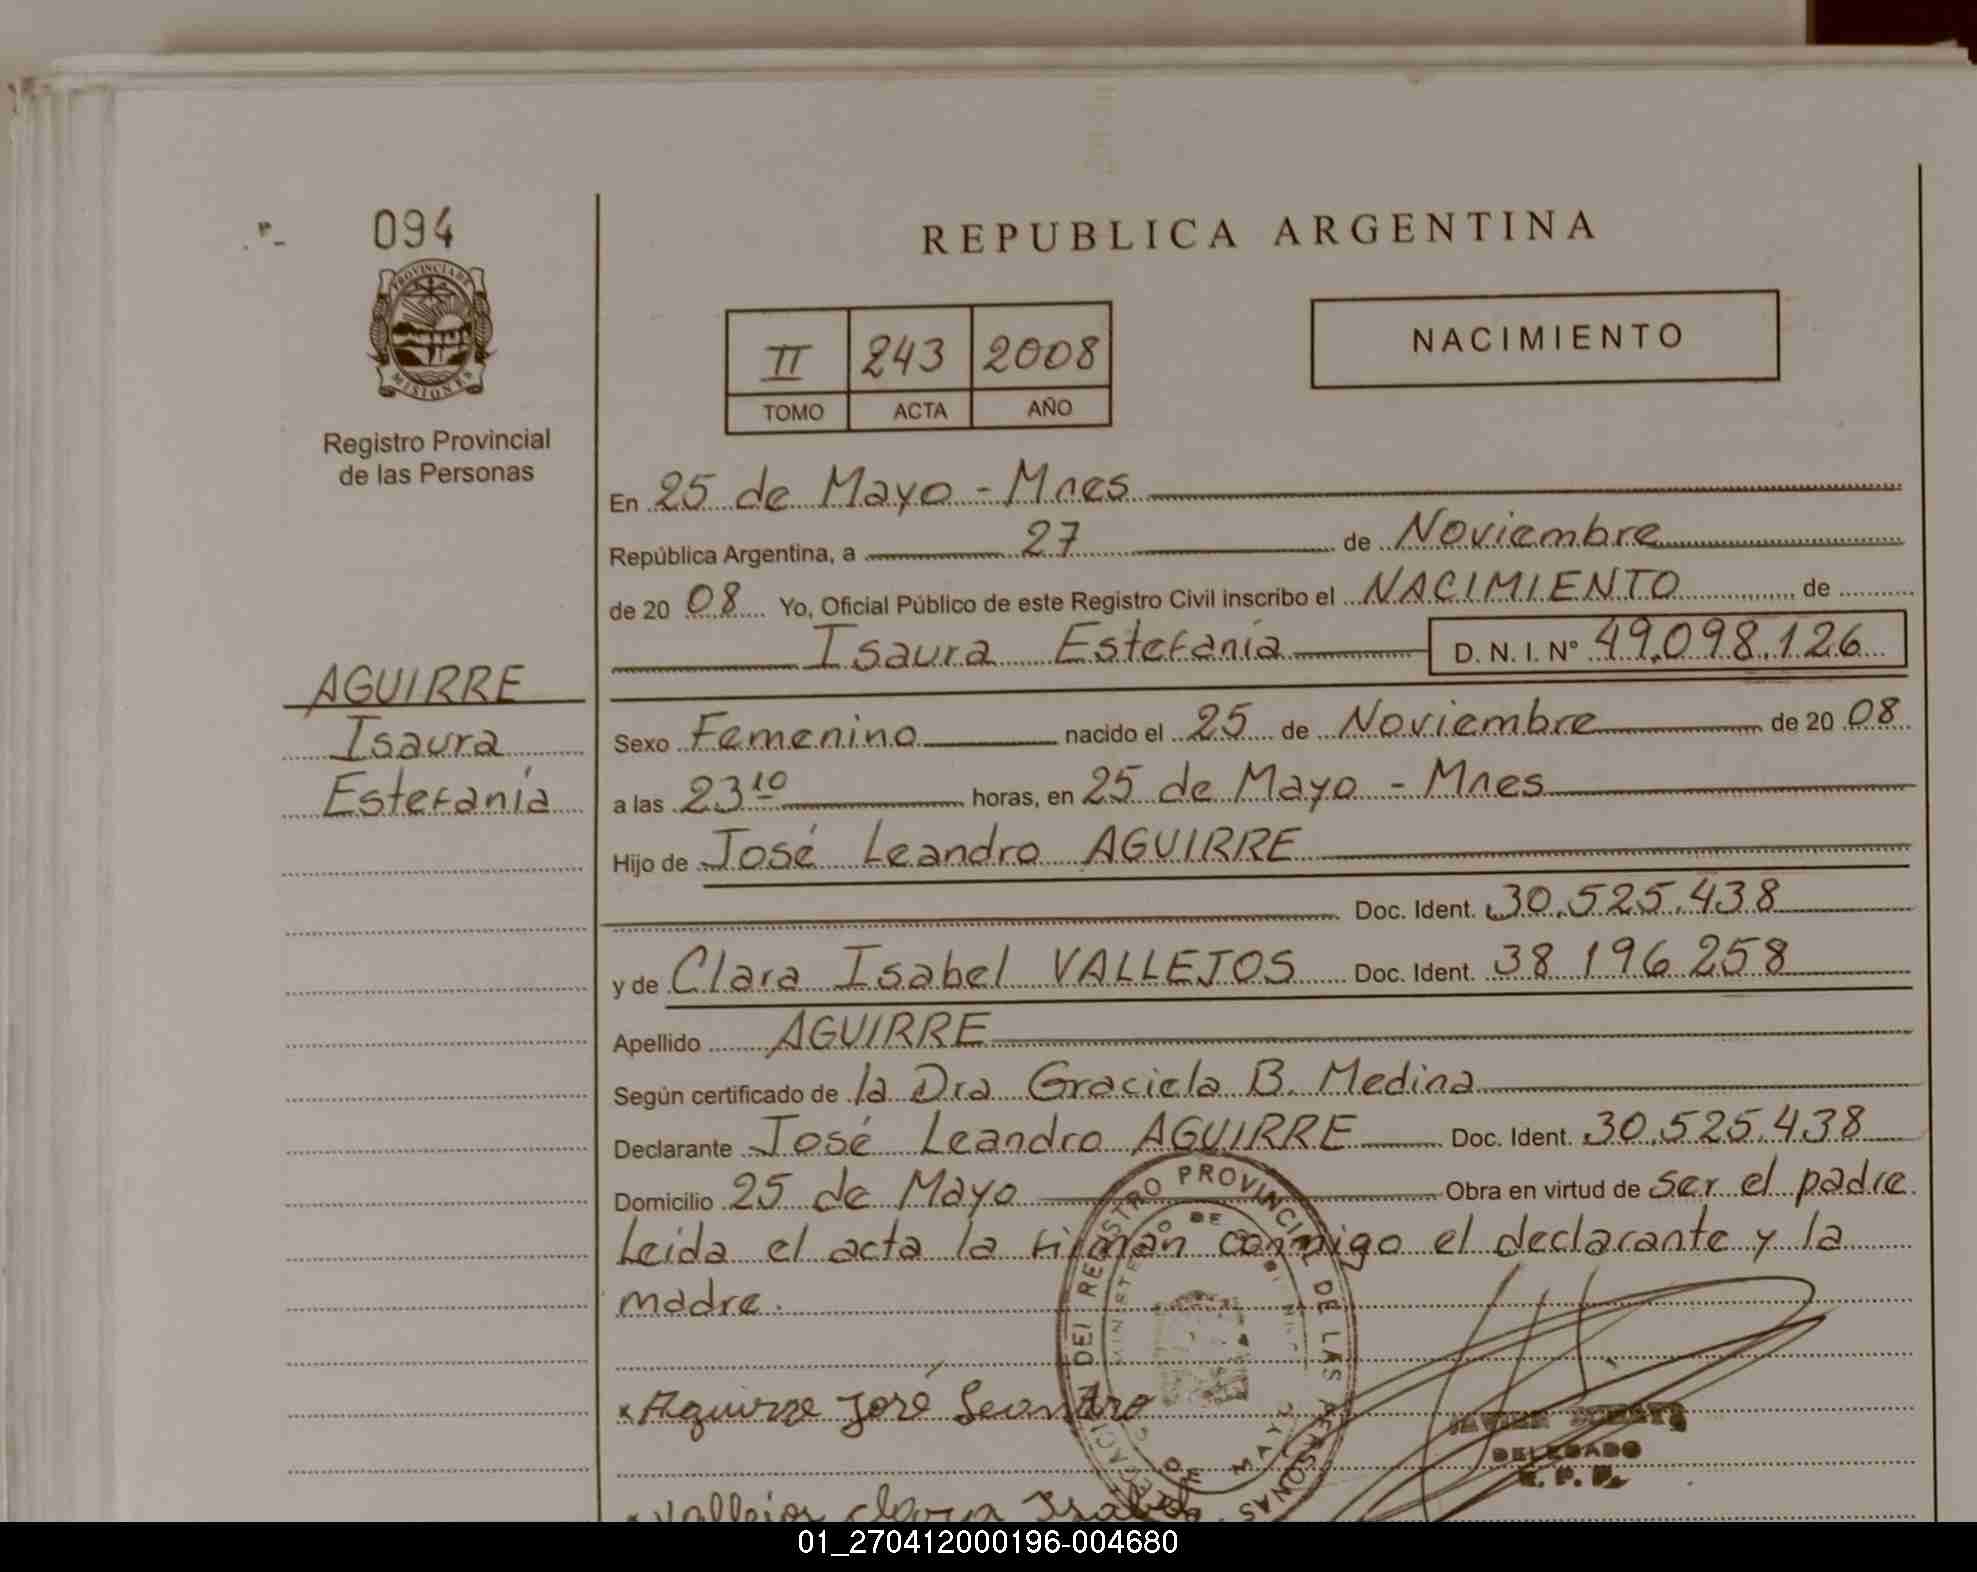 094
PROVINCIA DE
MISIONES
Registro Provincial
de las Personas
AGUIRRE
Isaura
Estefanía
REPUBLICA ARGENTINA
II 243 2008
TOMO ACTA AÑO
NACIMIENTO
En 25 de Mayo - Mnes
República Argentina, a 27 de Noviembre
de 20 08 Yo, Oficial Público de este Registro Civil inscribo el NACIMIENTO de
Isaura Estefanía D. N. I. Nº 49.098.126
Sexo Femenino nacido el 25 de Noviembre de 20 08
a las 23 10 horas, en 25 de Mayo - Mnes
Hijo de José Leandro AGUIRRE
Doc. Ident. 30.525.438
y de Clara Isabel VALLEJOS Doc. Ident. 38 196 258
Apellido AGUIRRE
Según certificado de la Dra Graciela B. Medina
Declarante José Leandro AGUIRRE Doc. Ident. 30.525.438
Domicilio 25 de Mayo Obra en virtud de ser el padre
Leída el acta la firman conmigo el declarante y la
madre.
DEL REGISTRO PROVINCIAL DE LAS PERSONAS
MINISTERIO DE
DE MAYO
x Aguirre José Leandro
DELEGADO
x Vallejos Clara Isabel
01_270412000196-004680